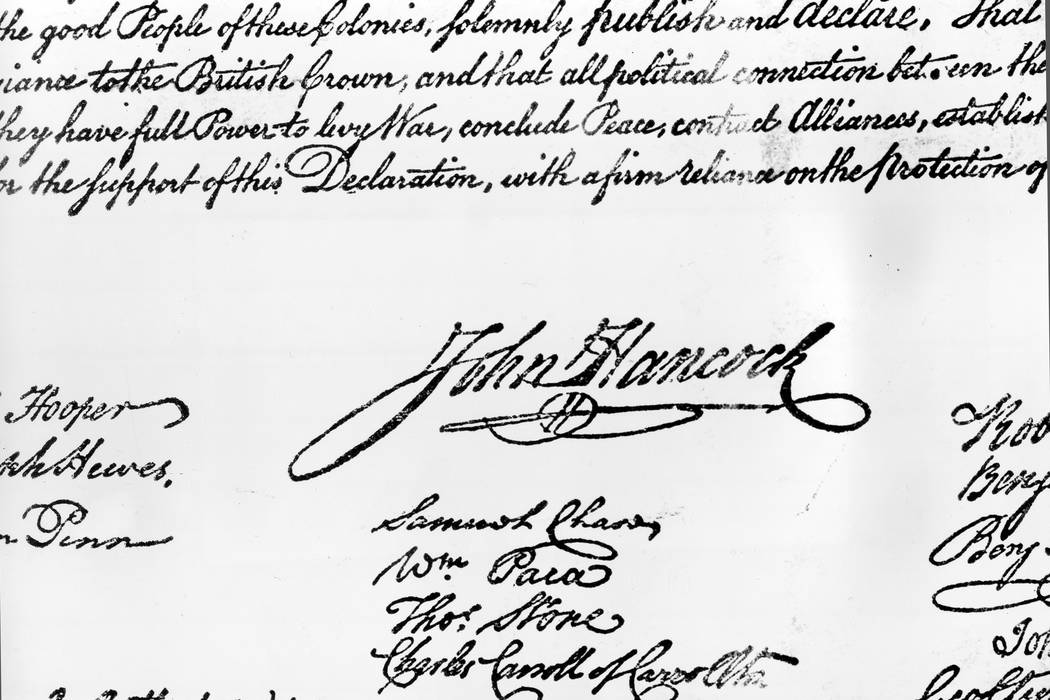 the good People of these Colonies, solemnly publish and declare, That
to the British Crown, and that all political connection bet een the
they have full Power to levy War, conclude Peace, contract Alliances, establish
for the support of this Declaration, with a firm reliance on the protection of
John Hancock
Hooper
Hewes,
Penn
Samuel Chase
Wm. Paca
Thos. Stone
Charles Carroll of Carrollton
Rob
Benj
Benj
Joh